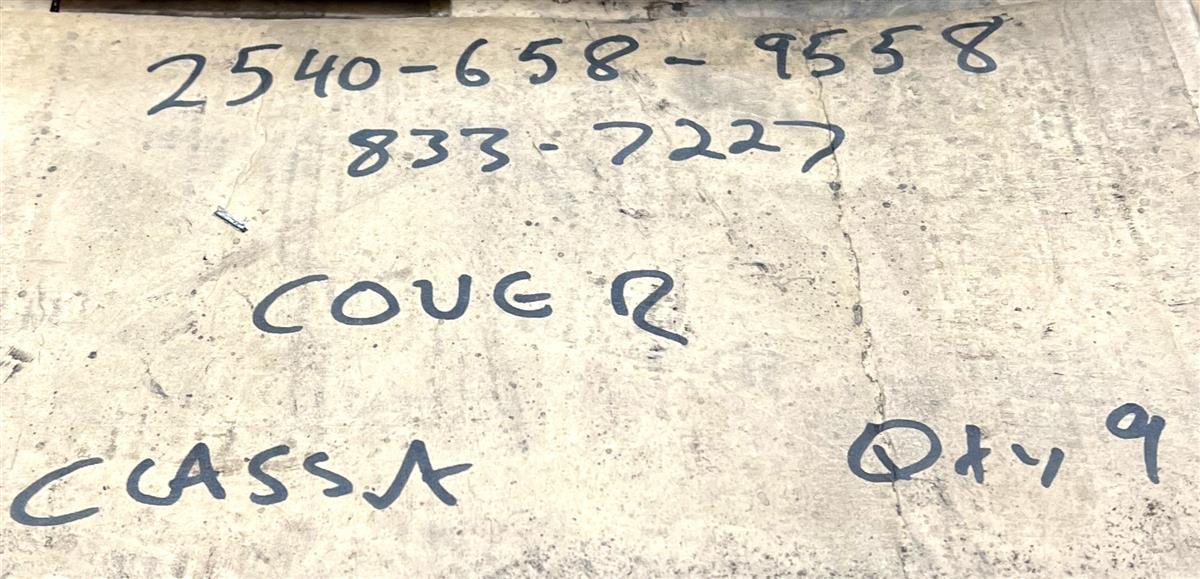 2540-658-9558
833-7227
COVER
CLASS A
Qty 9